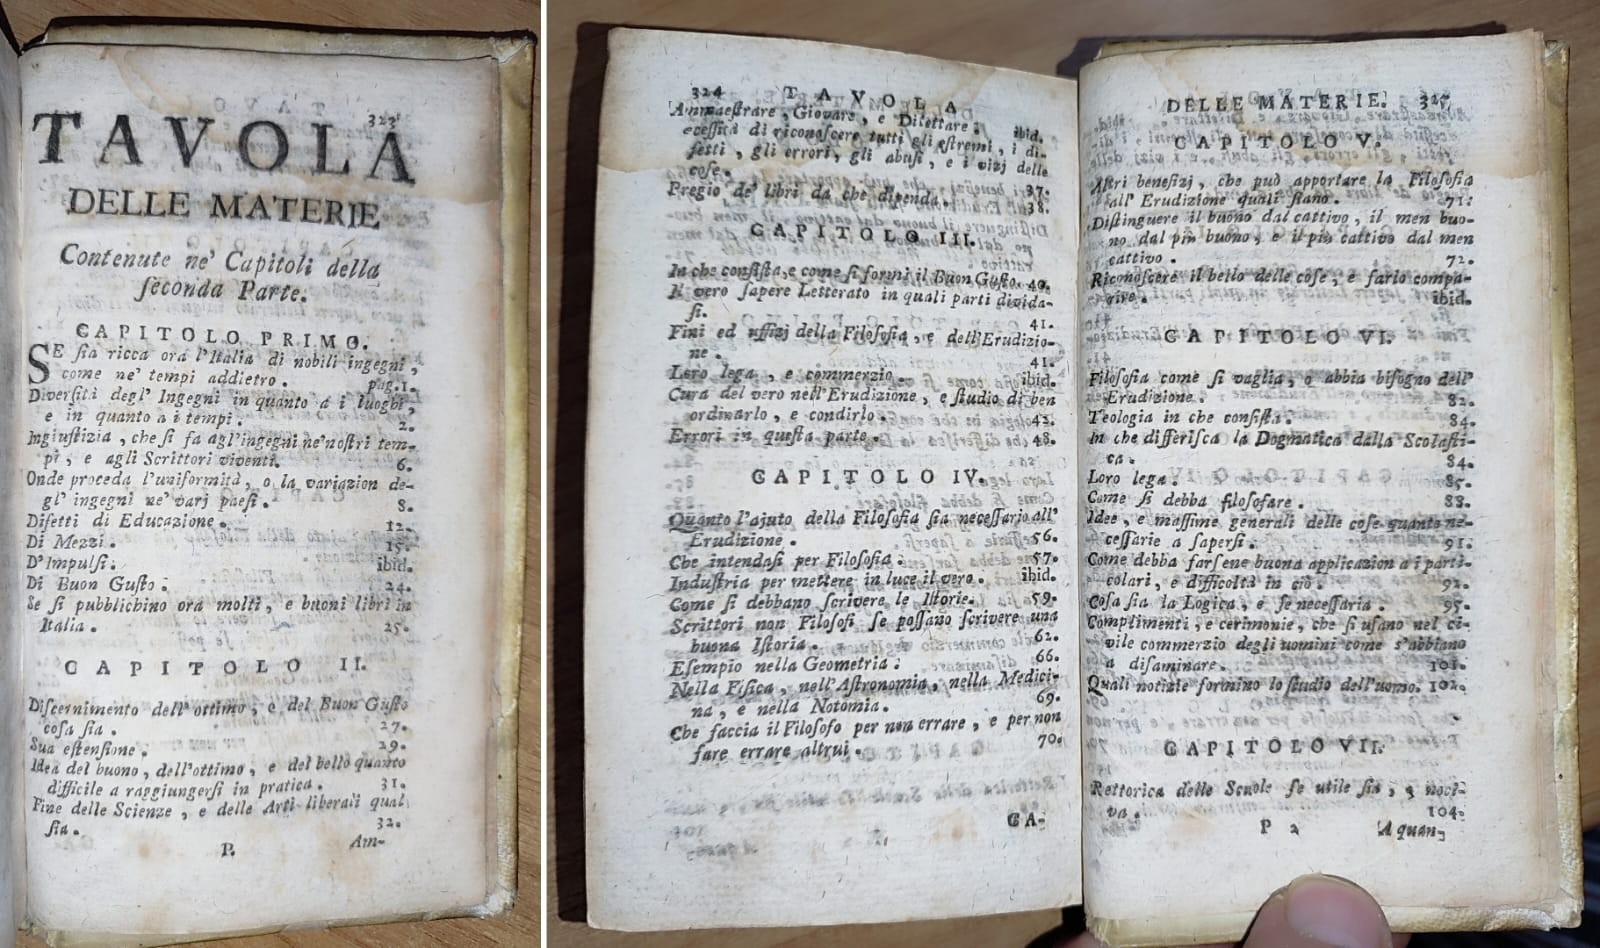 323
TAVOLA
DELLE MATERIE
Contenute ne' Capitoli della
ſeconda Parte.
CAPITOLO PRIMO.
SE ſia ricca ora l'Italia di nobili ingegni,
come ne' tempi addietro. pag.1.
Diverſità degl' Ingegni in quanto a i luoghi,
e in quanto a i tempi. 2.
Ingiuſtizia, che ſi fa agl'ingegni ne'noſtri tem-
pi, e agli Scrittori viventi. 6.
Onde proceda l'uniformità, o la variazion de-
gl' ingegni ne' varj paeſi. 8.
Difetti di Educazione. 12.
Di Mezzi. 15.
D'Impulſi. ibid.
Di Buon Guſto. 24.
Se ſi pubblichino ora molti, e buoni libri in
Italia. 25.
CAPITOLO II.
Diſcernimento dell'ottimo, e del Buon Guſto
coſa ſia. 27.
Sua eſtenſione. 29.
Idea del buono, dell'ottimo, e del bello quanto
difficile a raggiungerſi in pratica. 31.
Fine delle Scienze, e delle Arti liberali qual
ſia. 32.
P. Am-
324 TAVOLA
Ammaeſtrare, Giovare, e Dilettare. ibid.
eceſſità di riconoſcere tutti gli eſtremi, i di-
fetti, gli errori, gli abuſi, e i vizj delle
coſe. 37.
Pregio de' libri da che dipenda. 38.
CAPITOLO III.
In che conſiſta, e come ſi formi il Buon Guſto. 40.
Il vero ſapere Letterato in quali parti divida-
ſi. 41.
Fini ed uffizj della Filoſofia, e dell'Erudizio-
ne. 41.
Loro lega, e commerzio. ibid.
Cura del vero nell'Erudizione, e ſtudio di ben
ordinarlo, e condirlo. 43.
Errori in queſta parte. 48.
CAPITOLO IV.
Quanto l'ajuto della Filoſofia ſia neceſſario all'
Erudizione. 56.
Che intendaſi per Filoſofia: 57.
Induſtria per mettere in luce il vero. ibid.
Come ſi debbano ſcrivere le Iſtorie. 59.
Scrittori non Filoſofi ſe poſſano ſcrivere una
buona Iſtoria. 62.
Eſempio nella Geometria: 66.
Nella Fiſica, nell'Aſtronomia, nella Medici-
na, e nella Notomia. 69.
Che faccia il Filoſofo per non errare, e per non
fare errare altrui. 70.
CA-
DELLE MATERIE. 325
CAPITOLO V.
Altri benefizj, che può apportare la Filoſofia
all' Erudizione quali ſiano. 71.
Diſtinguere il buono dal cattivo, il men buo-
no dal più buono, e il più cattivo dal men
cattivo. 72.
Riconoſcere il bello delle coſe, e farlo compa-
rire. ibid.
CAPITOLO VI.
Filoſofia come ſi vaglia, o abbia biſogno dell'
Erudizione. 82.
Teologia in che conſiſta. 84.
In che differiſca la Dogmatica dalla Scolaſti-
ca. 84.
Loro lega. 85.
Come ſi debba filoſofare. 88.
Idee, e maſſime generali delle coſe quanto ne-
ceſſarie a ſaperſi. 91.
Come debba farſene buona applicazion a i parti-
colari, e difficoltà in ciò. 92.
Coſa ſia la Logica, e ſe neceſſaria. 95.
Complimenti, e cerimonie, che ſi uſano nel ci-
vile commerzio degli uomini come s'abbiano
a diſaminare. 101.
Quali notizie formino lo ſtudio dell'uomo. 102.
CAPITOLO VII.
Rettorica delle Scuole ſe utile ſia, o noci-
va. 104.
P 2 A quan-